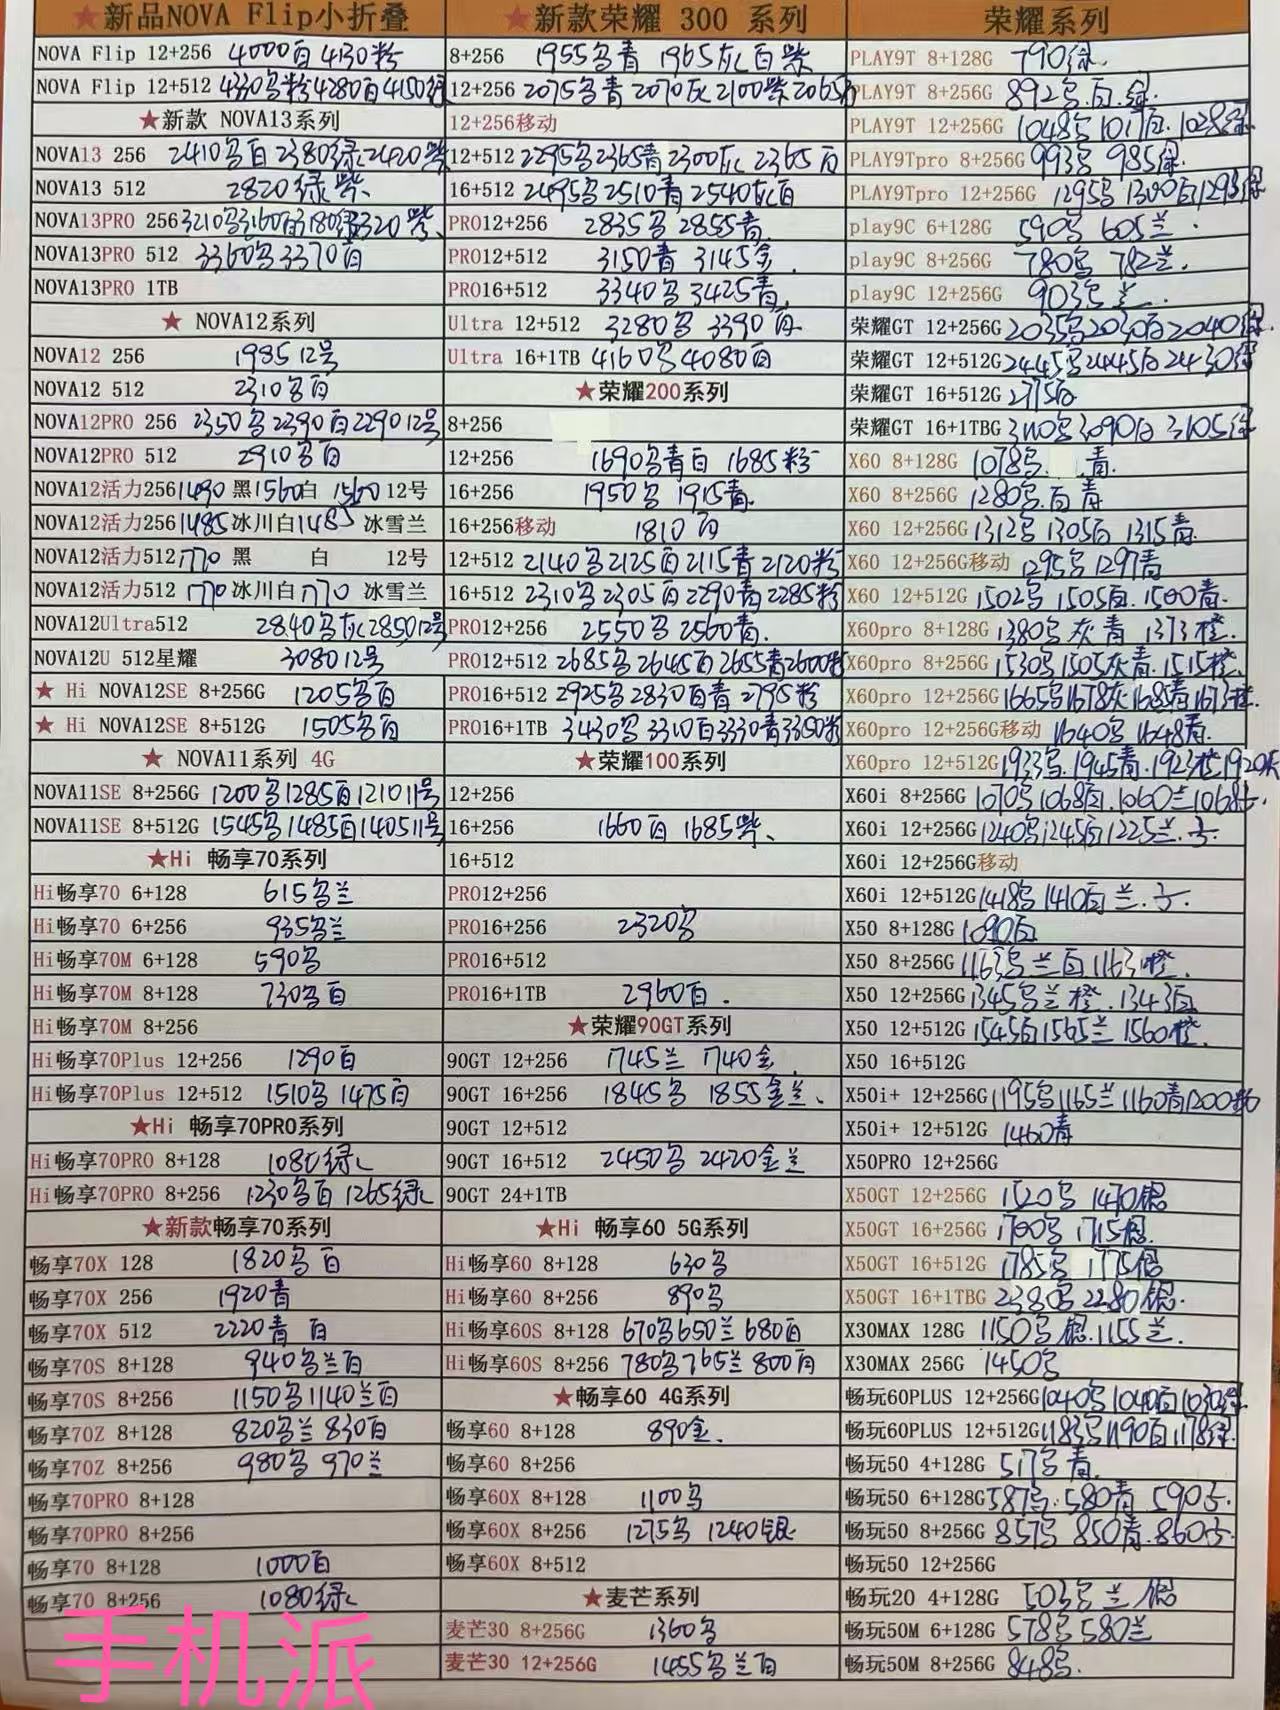 ★新品NOVA Flip小折叠
NOVA Flip 12+256 4000白 4130粉
NOVA Flip 12+512 4330乌粉4280白4150绿
★新款 NOVA13系列
NOVA13 256 2410乌白 2380绿2420紫
NOVA13 512 2820绿紫
NOVA13PRO 256 3210乌3160白3180绿3320紫
NOVA13PRO 512 3360乌3370白
NOVA13PRO 1TB
★ NOVA12系列
NOVA12 256 1985 12号
NOVA12 512 2310乌白
NOVA12PRO 256 2350乌2390白2290 12号
NOVA12PRO 512 2910乌白
NOVA12活力256 1490 黑1560白 1560 12号
NOVA12活力256 1485冰川白1485 冰雪兰
NOVA12活力512 1770 黑 白 12号
NOVA12活力512 1770冰川白1770 冰雪兰
NOVA12Ultra512 2840乌灰2850 12号
NOVA12U 512星耀 3080 12号
★ Hi NOVA12SE 8+256G 1205乌白
★ Hi NOVA12SE 8+512G 1505乌白
★ NOVA11系列 4G
NOVA11SE 8+256G 1200乌1285白1210 11号
NOVA11SE 8+512G 1545乌1485白1405 11号
★Hi 畅享70系列
Hi畅享70 6+128 615乌兰
Hi畅享70 6+256 935乌兰
Hi畅享70M 6+128 590乌
Hi畅享70M 8+128 730乌白
Hi畅享70M 8+256
Hi畅享70Plus 12+256 1290白
Hi畅享70Plus 12+512 1510乌 1475白
★Hi 畅享70PRO系列
Hi畅享70PRO 8+128 1080绿
Hi畅享70PRO 8+256 1230乌白 1265绿
★新款畅享70系列
畅享70X 128 1820乌白
畅享70X 256 1920青
畅享70X 512 2220青 白
畅享70S 8+128 940乌兰白
畅享70S 8+256 1150乌1140兰白
畅享70Z 8+128 820乌兰 830白
畅享70Z 8+256 980乌 970兰
畅享70PRO 8+128
畅享70PRO 8+256
畅享70 8+128 1000白
畅享70 8+256 1080绿
手机派
★新款荣耀 300 系列
8+256 1955乌青 1965灰白紫
12+256 2075乌青 2070灰2100紫2065白
12+256移动
12+512 2295乌2365青2300灰 2365白
16+512 2495乌2510青2540灰白
PRO12+256 2835乌 2855青
PRO12+512 3150青 3145金
PRO16+512 3340乌 3425青
Ultra 12+512 3280乌 3390白
Ultra 16+1TB 4160乌4080白
★荣耀200系列
8+256
12+256 1690乌青白 1685粉
16+256 1950乌 1915青
16+256移动 1810白
12+512 2140乌2125白2115青2120粉
16+512 2310乌2305白2290青2285粉
PRO12+256 2550乌 2560青
PRO12+512 2685乌2645白2655青2600粉
PRO16+512 2925乌2830白青 2795粉
PRO16+1TB 3430乌3310白3330青3350粉
★荣耀100系列
12+256
16+256 1660白 1685紫
16+512
PRO12+256
PRO16+256 2320乌
PRO16+512
PRO16+1TB 2960白
★荣耀90GT系列
90GT 12+256 1745兰 1740金
90GT 16+256 1845乌 1855金兰
90GT 12+512
90GT 16+512 2450乌 2420金兰
90GT 24+1TB
★Hi 畅享60 5G系列
Hi畅享60 8+128 630乌
Hi畅享60 8+256 890乌
Hi畅享60S 8+128 670乌650兰680白
Hi畅享60S 8+256 780乌765兰800白
★畅享60 4G系列
畅享60 8+128 890金
畅享60 8+256
畅享60X 8+128 1100乌
畅享60X 8+256 1275乌 1240银
畅享60X 8+512
★麦芒系列
麦芒30 8+256G 1360乌
麦芒30 12+256G 1455乌兰白
荣耀系列
PLAY9T 8+128G 790绿
PLAY9T 8+256G 892乌.白.绿
PLAY9T 12+256G 1048乌 1017白.1028绿
PLAY9Tpro 8+256G 993乌 985绿
PLAY9Tpro 12+256G 1295乌 1300白1293绿
play9C 6+128G 590乌 605兰
play9C 8+256G 780乌 782兰
play9C 12+256G 903乌 兰
荣耀GT 12+256G 2035乌2030白2040绿
荣耀GT 12+512G 2445乌2445白2430绿
荣耀GT 16+512G 2715白
荣耀GT 16+1TBG 3110乌3090白 3105绿
X60 8+128G 1078乌. 青
X60 8+256G 1280乌.白 青
X60 12+256G 1312乌 1305白 1315青
X60 12+256G移动 1295乌1297青
X60 12+512G 1502乌 1505白.1500青
X60pro 8+128G 1380乌.灰青 1373橙
X60pro 8+256G 1530乌1505灰青.1515橙
X60pro 12+256G 1665乌1678灰1685青1673橙
X60pro 12+256G移动 1640乌1648青
X60pro 12+512G 1933乌.1945青.1923橙1920灰
X60i 8+256G 1070乌1068白.1060兰1068
X60i 12+256G 1240乌1245白1225兰
X60i 12+256G移动
X60i 12+512G 1418乌 1410白 兰
X50 8+128G 1090白
X50 8+256G 1163乌 兰白1163橙
X50 12+256G 1345乌兰 橙.1343白
X50 12+512G 1545白1565兰 1560橙
X50 16+512G
X50i+ 12+256G 1195乌1165兰1160青1200粉
X50i+ 12+512G 1460青
X50PRO 12+256G
X50GT 12+256G 1520乌 1470银
X50GT 16+256G 1700乌 1715银
X50GT 16+512G 1785乌 1775银
X50GT 16+1TBG 2380乌 2280银
X30MAX 128G 1150乌 银.1155兰
X30MAX 256G 1450乌
畅玩60PLUS 12+256G 1040乌1040白1030绿
畅玩60PLUS 12+512G 1183乌1190白1178绿
畅玩50 4+128G 517乌 青
畅玩50 6+128G 587乌.580青 590
畅玩50 8+256G 857乌 850青.860
畅玩50 12+256G
畅玩20 4+128G 503乌 兰 银
畅玩50M 6+128G 578乌 580兰
畅玩50M 8+256G 848乌